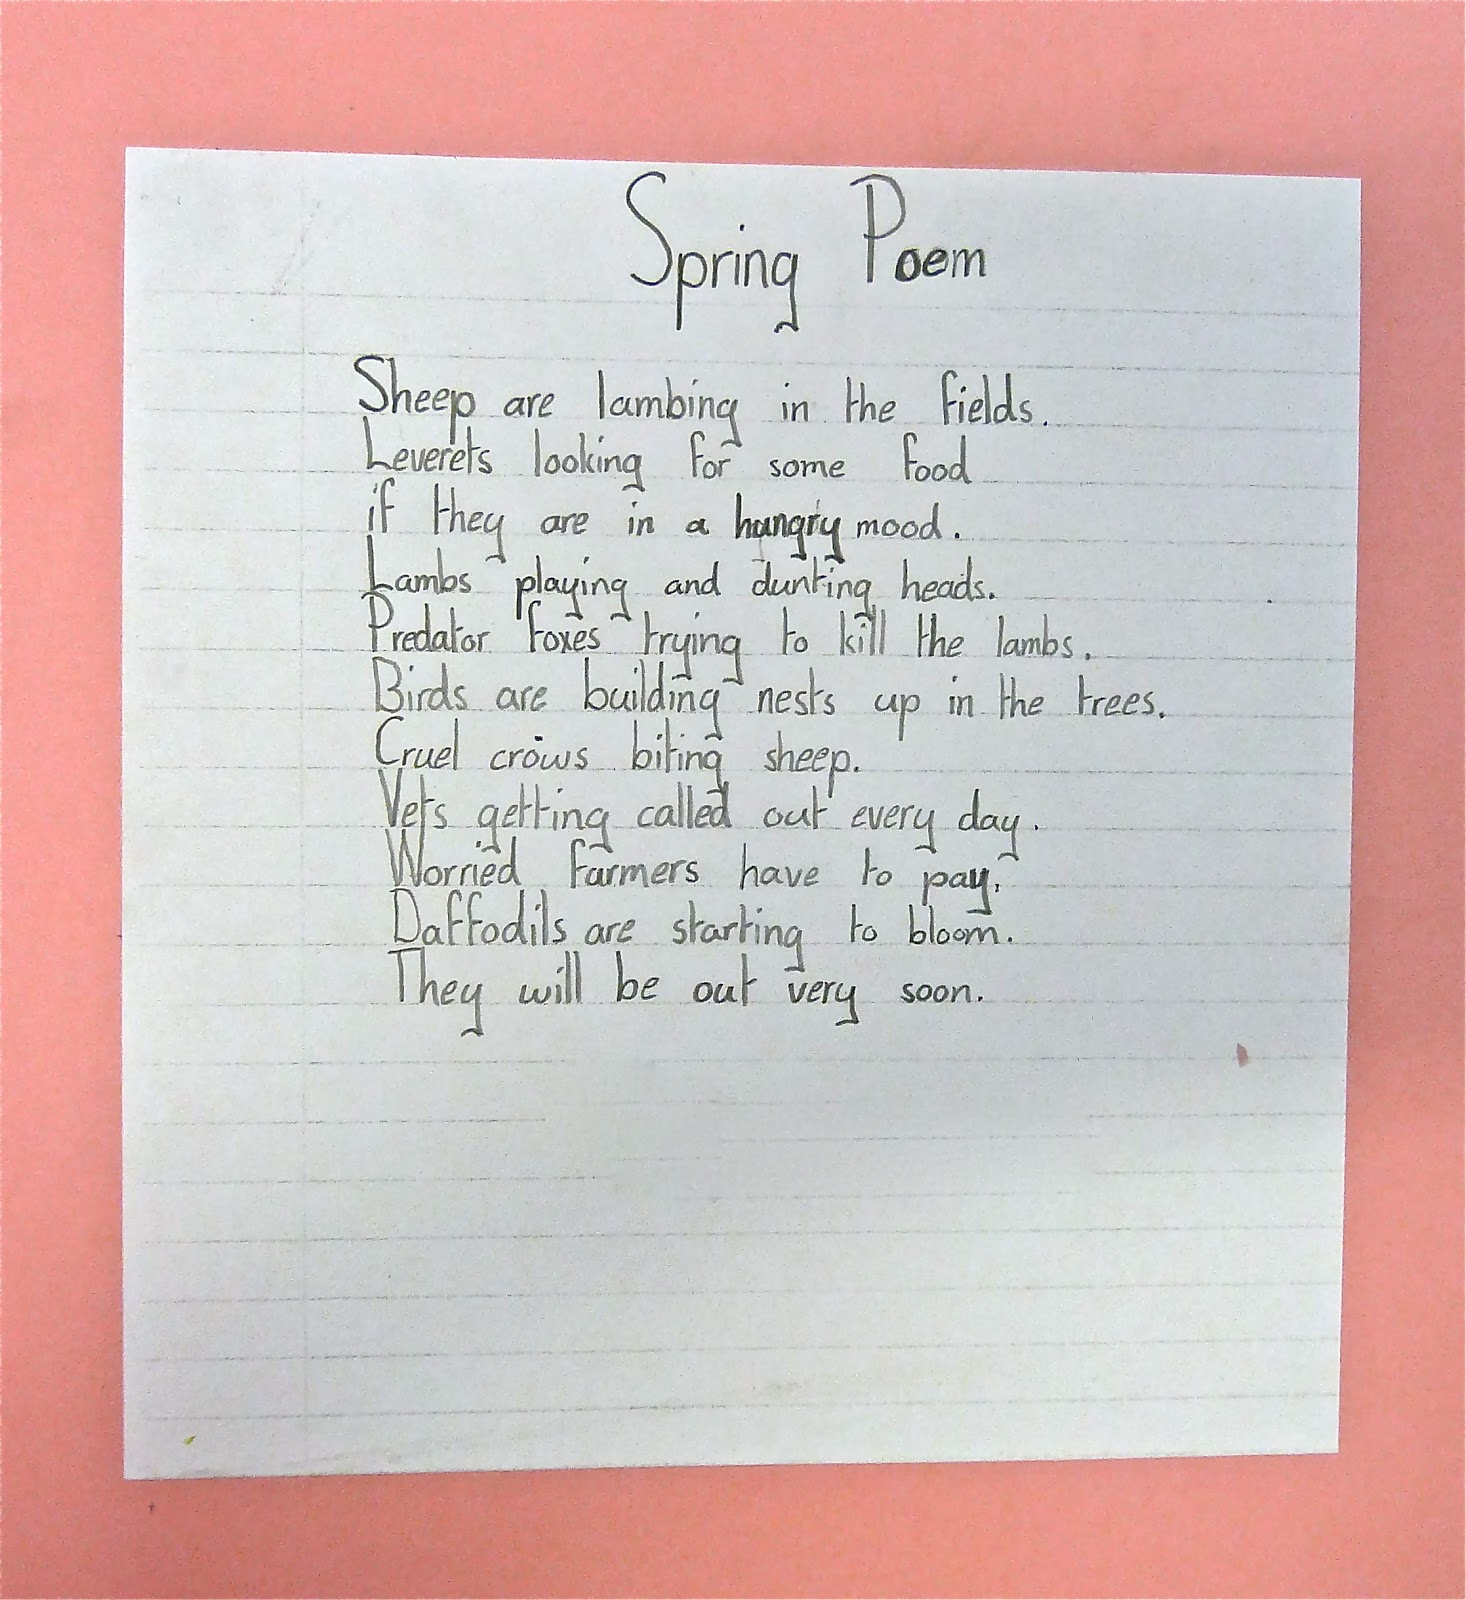 Spring Poem
Sheep are lambing in the fields.
Leverets looking for some food
if they are in a hungry mood.
Lambs playing and dunting heads.
Predator foxes trying to kill the lambs.
Birds are building nests up in the trees.
Cruel crows biting sheep.
Vets getting called out every day.
Worried farmers have to pay.
Daffodils are starting to bloom.
They will be out very soon.